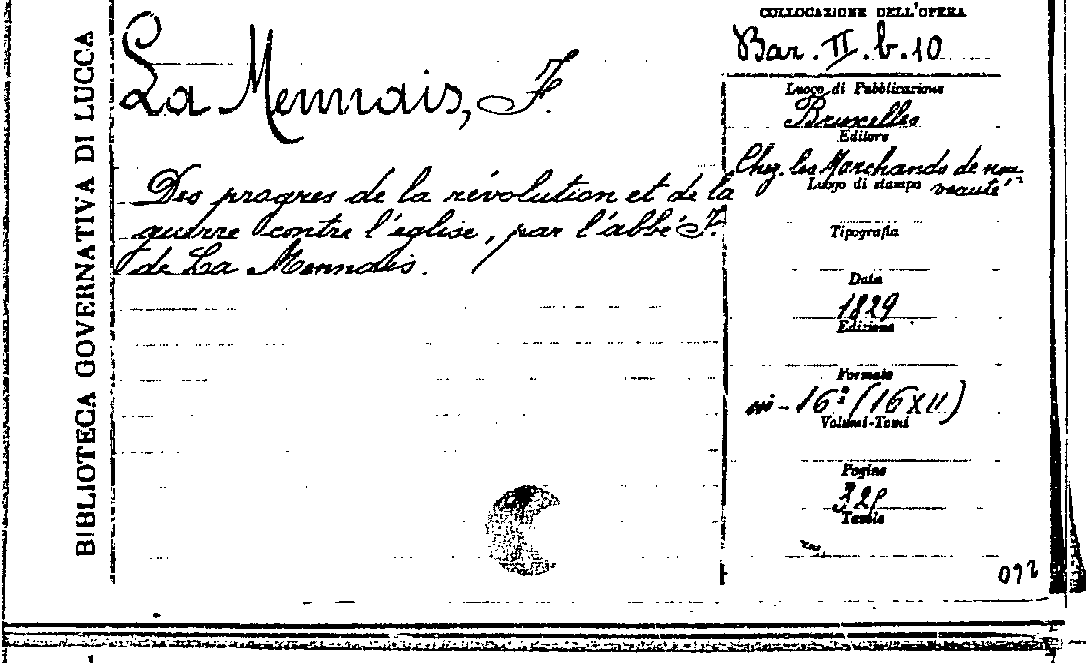 BIBLIOTECA GOVERNATIVA DI LUCCA
La Mennais, F.
Des progres de la révolution et de la
guerre contre l'église, par l'abbé F.
de La Mennais.
COLLOCAZIONE DELL'OPERA
Bar. II. b. 10
Luogo di Pubblicazione
Bruxelles
Editore
Chez les Marchands de nou-
veauté
Luogo di stampa
Tipografia
Data
1829
Edizione
Formato
in-16° (16x11)
Volumi-Tomi
Pagine
Tavole
072